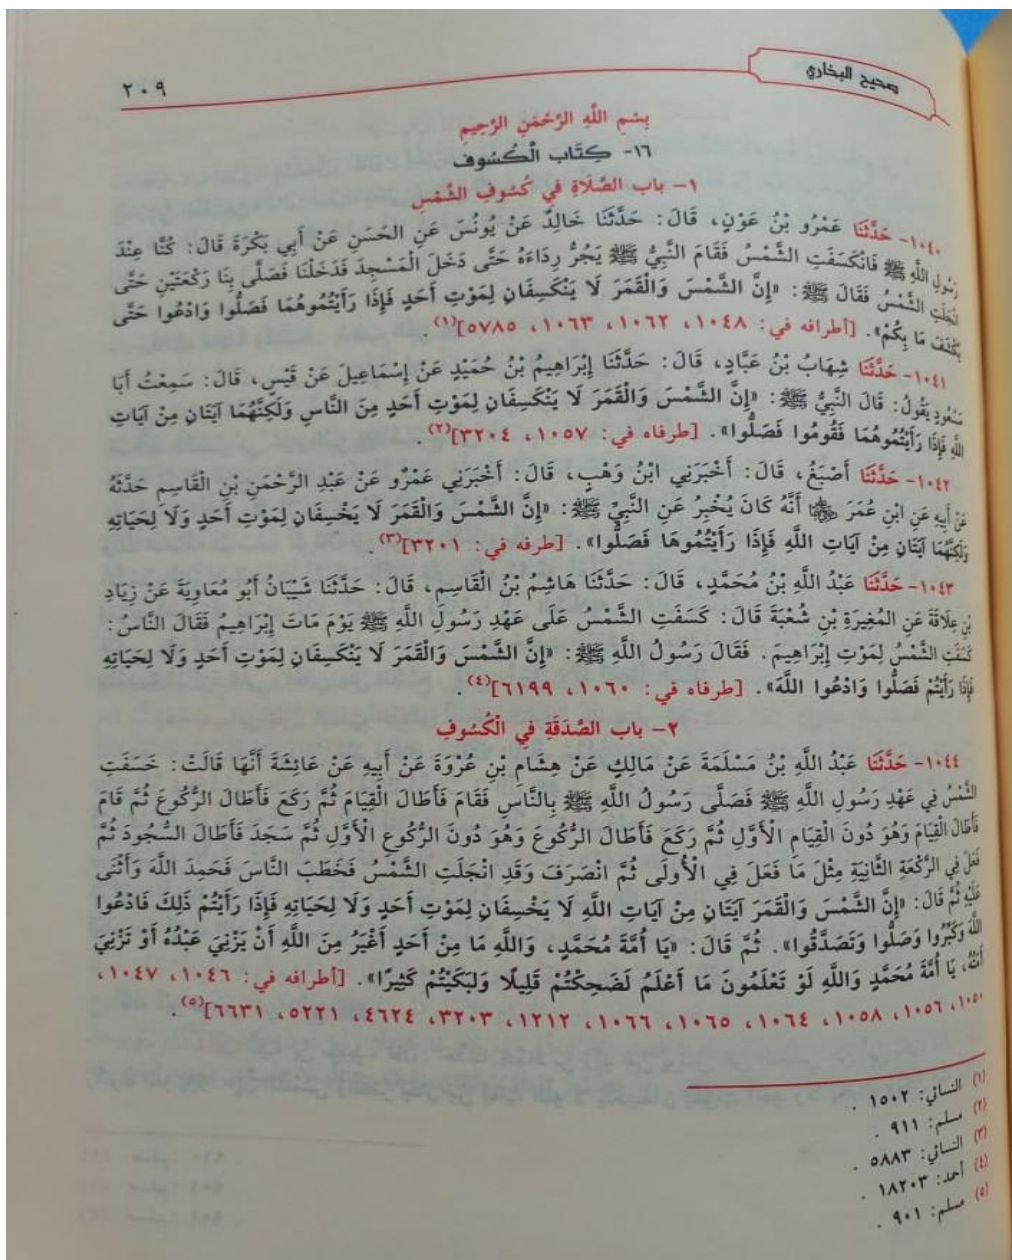 صحيح البخاري
٢٠٩
بِسْمِ اللَّهِ الرَّحْمَنِ الرَّحِيمِ
١٦- كِتَاب الْكُسُوف
١- باب الصَّلَاةِ فِي كُسُوفِ الشَّمْسِ
١٠٤٠- حَدَّثَنَا عَمْرُو بْنُ عَوْنٍ، قَالَ: حَدَّثَنَا خَالِدٌ عَنْ يُونُسَ عَنِ الْحَسَنِ عَنْ أَبِي بَكْرَةَ قَالَ: كُنَّا عِنْدَ
رَسُولِ اللَّهِ ﷺ فَانْكَسَفَتِ الشَّمْسُ فَقَامَ النَّبِيُّ ﷺ يَجُرُّ رِدَاءَهُ حَتَّى دَخَلَ الْمَسْجِدَ فَدَخَلْنَا فَصَلَّى بِنَا رَكْعَتَيْنِ حَتَّى
انْجَلَتِ الشَّمْسُ فَقَالَ ﷺ: «إِنَّ الشَّمْسَ وَالْقَمَرَ لَا يَنْكَسِفَانِ لِمَوْتِ أَحَدٍ فَإِذَا رَأَيْتُمُوهُمَا فَصَلُّوا وَادْعُوا حَتَّى
يُكْشَفَ مَا بِكُمْ». [أطرافه في: ١٠٤٨، ١٠٦٢، ١٠٦٣، ٥٧٨٥](١).
١٠٤١- حَدَّثَنَا شِهَابُ بْنُ عَبَّادٍ، قَالَ: حَدَّثَنَا إِبْرَاهِيمُ بْنُ حُمَيْدٍ عَنْ إِسْمَاعِيلَ عَنْ قَيْسٍ، قَالَ: سَمِعْتُ أَبَا
مَسْعُودٍ يَقُولُ: قَالَ النَّبِيُّ ﷺ: «إِنَّ الشَّمْسَ وَالْقَمَرَ لَا يَنْكَسِفَانِ لِمَوْتِ أَحَدٍ مِنَ النَّاسِ وَلَكِنَّهُمَا آيَتَانِ مِنْ آيَاتِ
اللَّهِ فَإِذَا رَأَيْتُمُوهُمَا فَقُومُوا فَصَلُّوا». [طرفاه في: ١٠٥٧، ٣٢٠٤](٢).
١٠٤٢- حَدَّثَنَا أَصْبَغُ، قَالَ: أَخْبَرَنِي ابْنُ وَهْبٍ، قَالَ: أَخْبَرَنِي عَمْرٌو عَنْ عَبْدِ الرَّحْمَنِ بْنِ الْقَاسِمِ حَدَّثَهُ
عَنْ أَبِيهِ عَنِ ابْنِ عُمَرَ ﵄ أَنَّهُ كَانَ يُخْبِرُ عَنِ النَّبِيِّ ﷺ: «إِنَّ الشَّمْسَ وَالْقَمَرَ لَا يَخْسِفَانِ لِمَوْتِ أَحَدٍ وَلَا لِحَيَاتِهِ
وَلَكِنَّهُمَا آيَتَانِ مِنْ آيَاتِ اللَّهِ فَإِذَا رَأَيْتُمُوهَا فَصَلُّوا». [طرفه في: ٣٢٠١](٣).
١٠٤٣- حَدَّثَنَا عَبْدُ اللَّهِ بْنُ مُحَمَّدٍ، قَالَ: حَدَّثَنَا هَاشِمُ بْنُ الْقَاسِمِ، قَالَ: حَدَّثَنَا شَيْبَانُ أَبُو مُعَاوِيَةَ عَنْ زِيَادِ
بْنِ عِلَاقَةَ عَنِ الْمُغِيرَةِ بْنِ شُعْبَةَ قَالَ: كَسَفَتِ الشَّمْسُ عَلَى عَهْدِ رَسُولِ اللَّهِ ﷺ يَوْمَ مَاتَ إِبْرَاهِيمُ فَقَالَ النَّاسُ:
كَسَفَتِ الشَّمْسُ لِمَوْتِ إِبْرَاهِيمَ. فَقَالَ رَسُولُ اللَّهِ ﷺ: «إِنَّ الشَّمْسَ وَالْقَمَرَ لَا يَنْكَسِفَانِ لِمَوْتِ أَحَدٍ وَلَا لِحَيَاتِهِ
فَإِذَا رَأَيْتُمْ فَصَلُّوا وَادْعُوا اللَّهَ». [طرفاه في: ١٠٦٠، ٦١٩٩](٤).
٢- باب الصَّدَقَةِ فِي الْكُسُوفِ
١٠٤٤- حَدَّثَنَا عَبْدُ اللَّهِ بْنُ مَسْلَمَةَ عَنْ مَالِكٍ عَنْ هِشَامِ بْنِ عُرْوَةَ عَنْ أَبِيهِ عَنْ عَائِشَةَ أَنَّهَا قَالَتْ: خَسَفَتِ
الشَّمْسُ فِي عَهْدِ رَسُولِ اللَّهِ ﷺ فَصَلَّى رَسُولُ اللَّهِ ﷺ بِالنَّاسِ فَقَامَ فَأَطَالَ الْقِيَامَ ثُمَّ رَكَعَ فَأَطَالَ الرُّكُوعَ ثُمَّ قَامَ
فَأَطَالَ الْقِيَامَ وَهُوَ دُونَ الْقِيَامِ الْأَوَّلِ ثُمَّ رَكَعَ فَأَطَالَ الرُّكُوعَ وَهُوَ دُونَ الرُّكُوعِ الْأَوَّلِ ثُمَّ سَجَدَ فَأَطَالَ السُّجُودَ ثُمَّ
فَعَلَ فِي الرَّكْعَةِ الثَّانِيَةِ مِثْلَ مَا فَعَلَ فِي الْأُولَى ثُمَّ انْصَرَفَ وَقَدِ انْجَلَتِ الشَّمْسُ فَخَطَبَ النَّاسَ فَحَمِدَ اللَّهَ وَأَثْنَى
عَلَيْهِ ثُمَّ قَالَ: «إِنَّ الشَّمْسَ وَالْقَمَرَ آيَتَانِ مِنْ آيَاتِ اللَّهِ لَا يَخْسِفَانِ لِمَوْتِ أَحَدٍ وَلَا لِحَيَاتِهِ فَإِذَا رَأَيْتُمْ ذَلِكَ فَادْعُوا
اللَّهَ وَكَبِّرُوا وَصَلُّوا وَتَصَدَّقُوا». ثُمَّ قَالَ: «يَا أُمَّةَ مُحَمَّدٍ، وَاللَّهِ مَا مِنْ أَحَدٍ أَغْيَرُ مِنَ اللَّهِ أَنْ يَزْنِيَ عَبْدُهُ أَوْ تَزْنِيَ
أَمَتُهُ، يَا أُمَّةَ مُحَمَّدٍ وَاللَّهِ لَوْ تَعْلَمُونَ مَا أَعْلَمُ لَضَحِكْتُمْ قَلِيلًا وَلَبَكَيْتُمْ كَثِيرًا». [أطرافه في: ١٠٤٦، ١٠٤٧،
١٠٥٠، ١٠٥٦، ١٠٥٨، ١٠٦٤، ١٠٦٥، ١٠٦٦، ١٢١٢، ٣٢٠٣، ٤٦٢٤، ٥٢٢١، ٦٦٣١](٥).
(١) النسائي: ١٥٠٢.
(٢) مسلم: ٩١١.
(٣) النسائي: ٥٨٨٣.
(٤) أحمد: ١٨٢٠٣.
(٥) مسلم: ٩٠١.